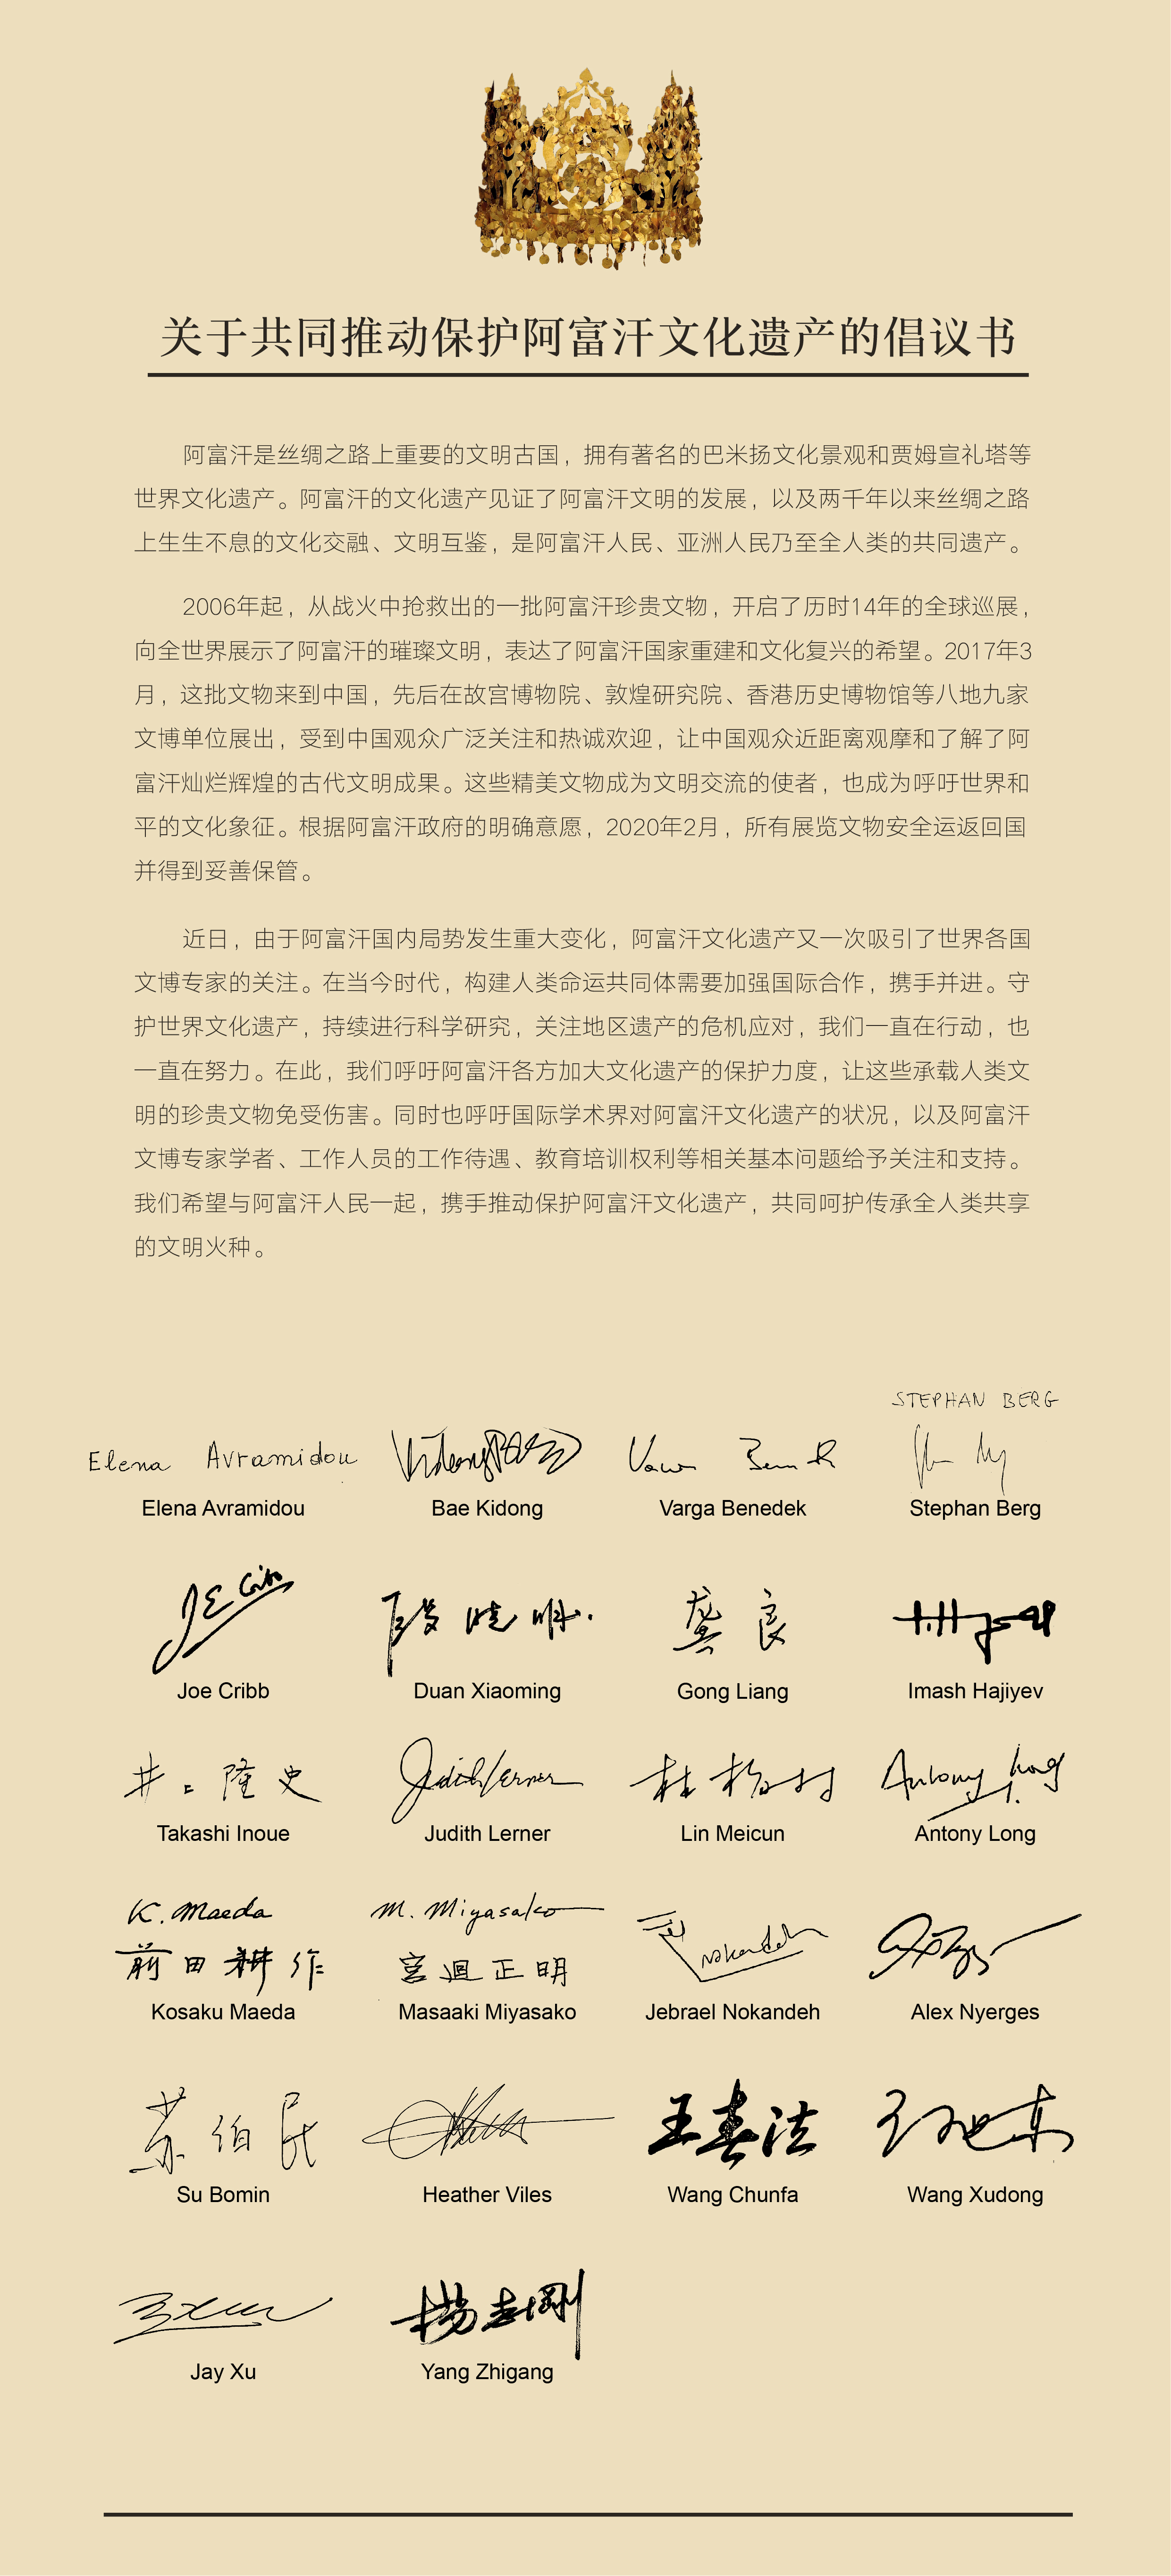 关于共同推动保护阿富汗文化遗产的倡议书
阿富汗是丝绸之路上重要的文明古国，拥有著名的巴米扬文化景观和贾姆宣礼塔等
世界文化遗产。阿富汗的文化遗产见证了阿富汗文明的发展，以及两千年以来丝绸之路
上生生不息的文化交融、文明互鉴，是阿富汗人民、亚洲人民乃至全人类的共同遗产。
2006年起，从战火中抢救出的一批阿富汗珍贵文物，开启了历时14年的全球巡展，
向全世界展示了阿富汗的璀璨文明，表达了阿富汗国家重建和文化复兴的希望。2017年3
月，这批文物来到中国，先后在故宫博物院、敦煌研究院、香港历史博物馆等八地九家
文博单位展出，受到中国观众广泛关注和热诚欢迎，让中国观众近距离观摩和了解了阿
富汗灿烂辉煌的古代文明成果。这些精美文物成为文明交流的使者，也成为呼吁世界和
平的文化象征。根据阿富汗政府的明确意愿，2020年2月，所有展览文物安全运返回国
并得到妥善保管。
近日，由于阿富汗国内局势发生重大变化，阿富汗文化遗产又一次吸引了世界各国
文博专家的关注。在当今时代，构建人类命运共同体需要加强国际合作，携手并进。守
护世界文化遗产，持续进行科学研究，关注地区遗产的危机应对，我们一直在行动，也
一直在努力。在此，我们呼吁阿富汗各方加大文化遗产的保护力度，让这些承载人类文
明的珍贵文物免受伤害。同时也呼吁国际学术界对阿富汗文化遗产的状况，以及阿富汗
文博专家学者、工作人员的工作待遇、教育培训权利等相关基本问题给予关注和支持。
我们希望与阿富汗人民一起，携手推动保护阿富汗文化遗产，共同呵护传承全人类共享
的文明火种。
STEPHAN BERG
Elena Avramidou
Elena Avramidou Bae Kidong Varga Benedek Stephan Berg
段晓明 龚良
Joe Cribb Duan Xiaoming Gong Liang Imash Hajiyev
井上隆史 Judith Lerner 林梅村 Antony Long
Takashi Inoue Judith Lerner Lin Meicun Antony Long
K. Maeda M. Miyasako Nokandeh
前田耕作 宮廻正明
Kosaku Maeda Masaaki Miyasako Jebrael Nokandeh Alex Nyerges
苏伯民 王春法 王旭东
Su Bomin Heather Viles Wang Chunfa Wang Xudong
杨志刚
Jay Xu Yang Zhigang